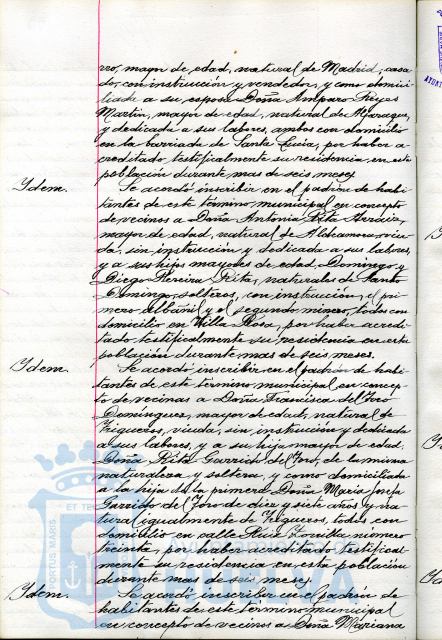 rro, mayor de edad, natural de Madrid, casa
do, con instrucción y vendedor, y como domici
liada a su esposa Doña Amparo Reyes
Martin, mayor de edad, natural de
y dedicada a sus labores, ambos con domicilio
en la barriada de Santa Lucia, por haber a-
creditado testifical su residencia en esta
población durante mas de seis meses.
Ydem.
Se acordó inscribir en el padrón de habi
tantes de este término municipal en concepto
de vecinos a Doña Antonia Rita
mayor de edad, natural de viu
da, sin instrucción y dedicada a sus labores,
y a sus hijos mayores de edad, Domingo y
Diego Pereira Rita, naturales de Santo
Domingo, solteros, con instrucción, el pri
mero albañil y el segundo minero, todos con
domicilio en Villa Rosa, por haber acredi
tado testificalmente su residencia en esta
población durante mas de seis meses.
Ydem.
Se acordó inscribir en el padrón de habi
tantes de este término municipal en concep
to de vecinas a Doña Francisca del Toro
Dominguez, mayor de edad, natural de
Trigueros, viuda, sin instrucción y dedicada
a sus labores, y a su hija mayor de edad,
Doña Rita Garrido del Toro, de la misma
naturaleza y soltera, y como domiciliada
a la hija de la primera Doña Maria Josefa
Garrido del Toro de diez y siete años y na
tural igualmente de Trigueros, todas con
domicilio en calle Ruiz Zorrilla numero
treinta, por haber acreditado testifical
mente su residencia en esta población
durante mas de seis meses.
Ydem.
Se acordó inscribir en el padrón de
habitantes de este término municipal
en concepto de vecinos a Doña Mariana
PORTUS MARIS ET TE